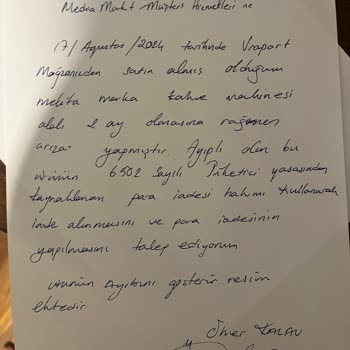 Media Markt Müşteri Hizmetleri ne
17/Ağustos/2024 tarihinde Vıaport
Mağazanızdan satın almış olduğum
melita marka kahve makinesi
alalı 2 ay olmasına rağmen
arıza yapmıştır. Ayıplı olan bu
ürünün 6502 Sayılı Tüketici yasasından
kaynaklanan para iadesi hakkımı kullanarak
iade alınmasını ve para iadesinin
yapılmasını talep ediyorum
ürünün Ayıbını gösterir resim
ektedir
Ömer